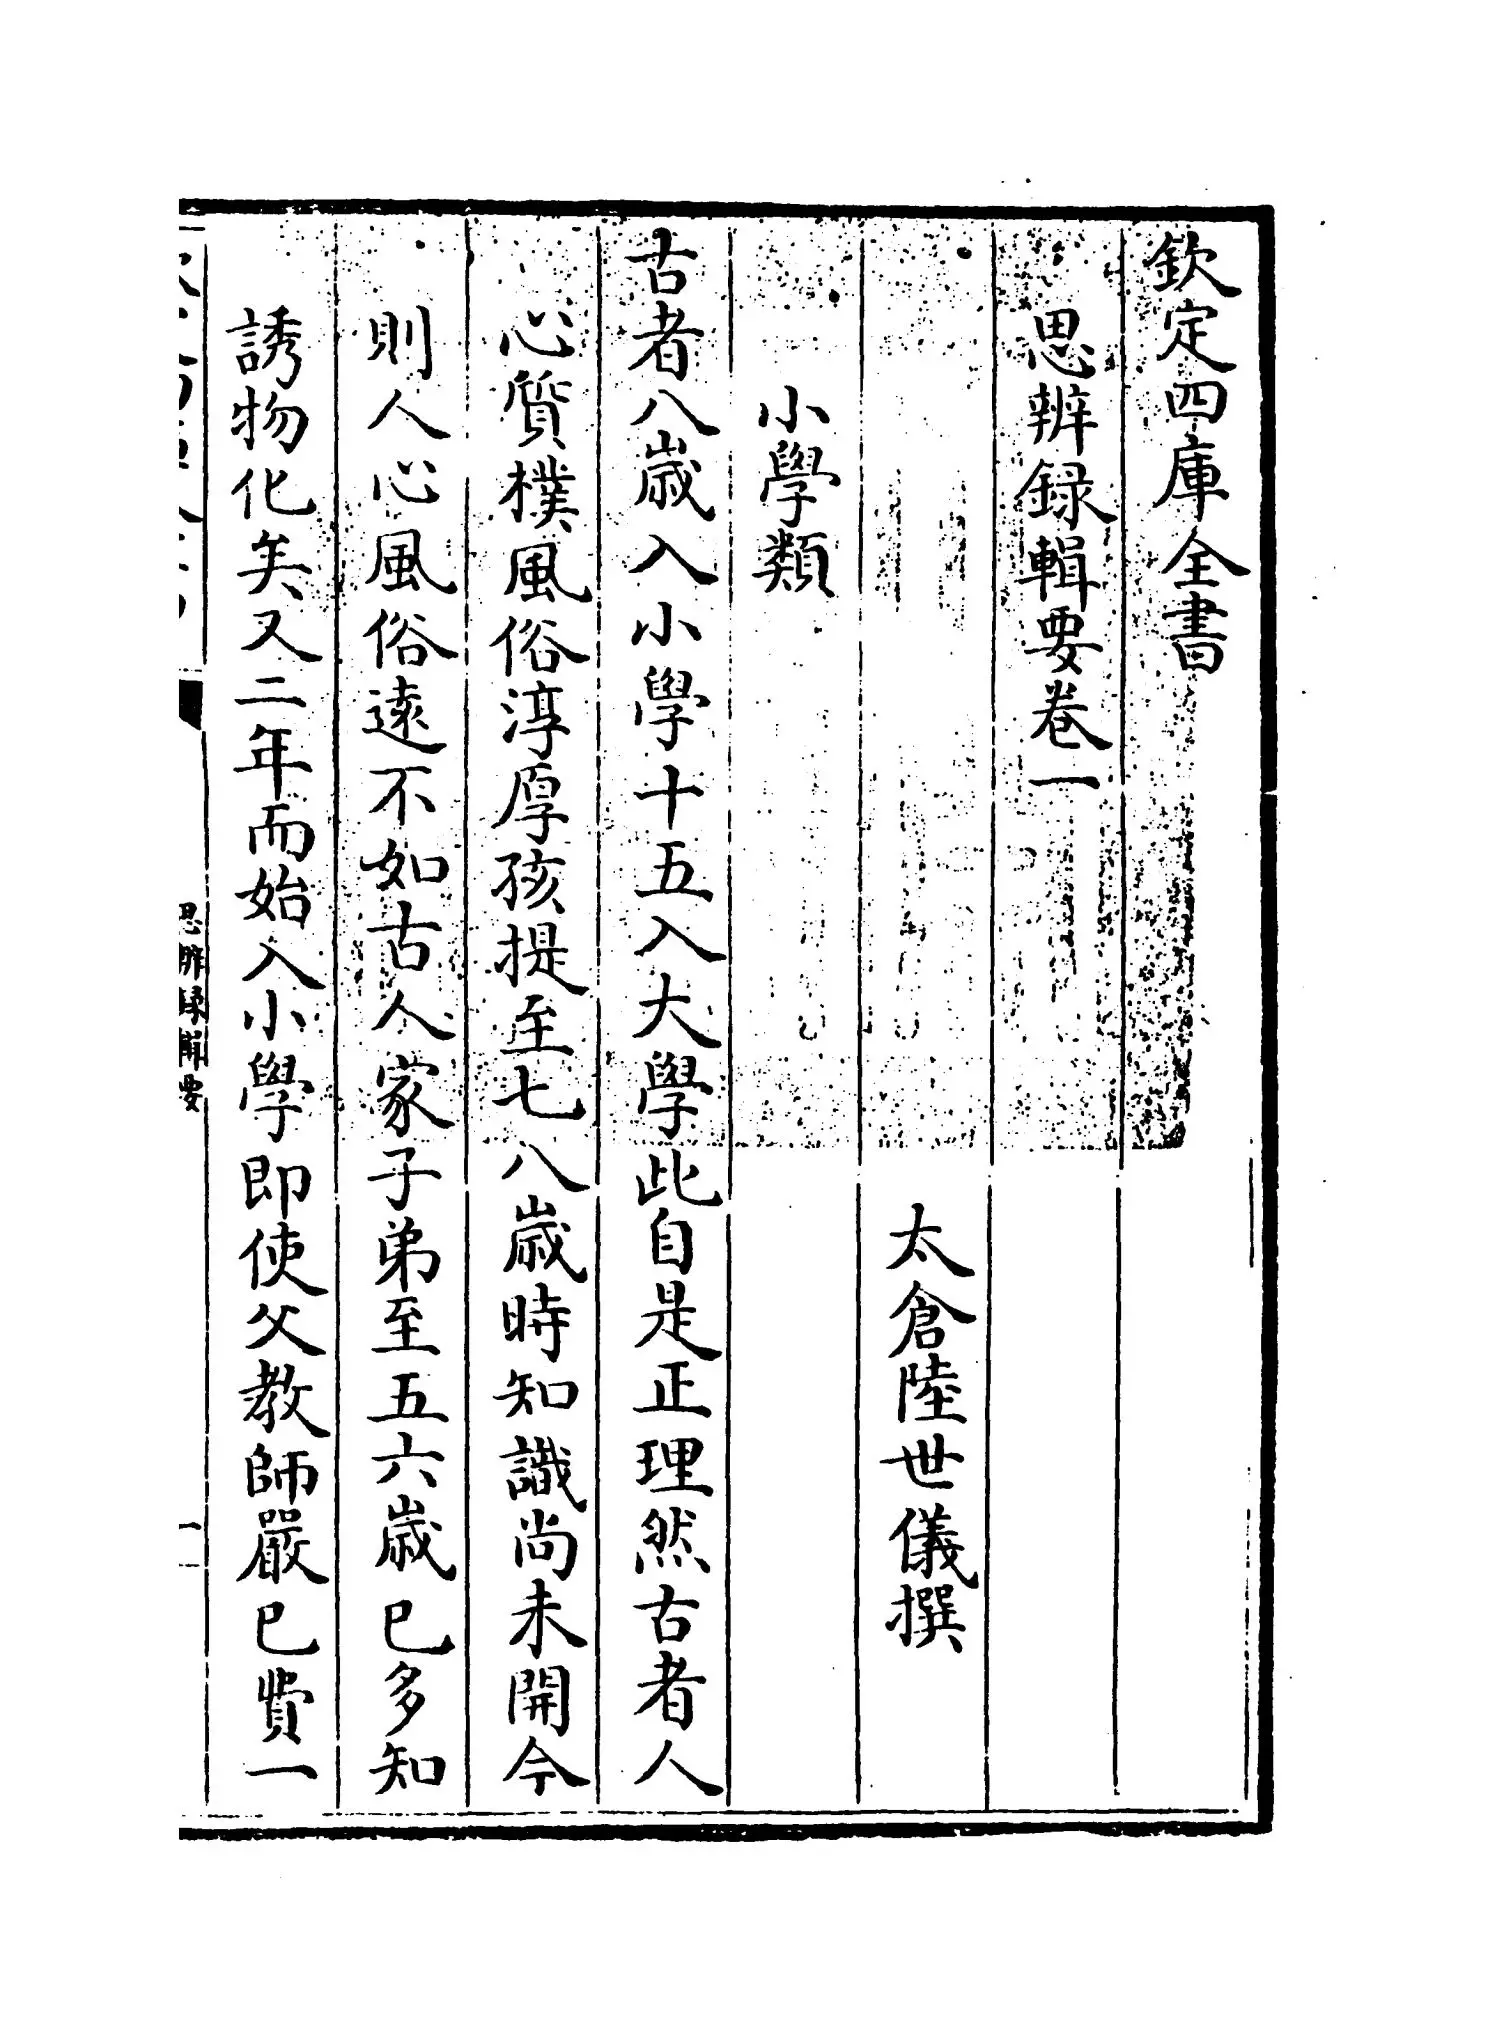 欽定四庫全書
思辨録輯要卷一
太倉陸世儀撰
小學類
古者八歲入小學十五入大學此自是正理然古者人
心質樸風俗淳厚孩提至七八歲時知識尚未開今
則人心風俗遠不如古人家子弟至五六歲已多知
誘物化矣又二年而始入小學即使父教師嚴已費一
思辨録輯要
一